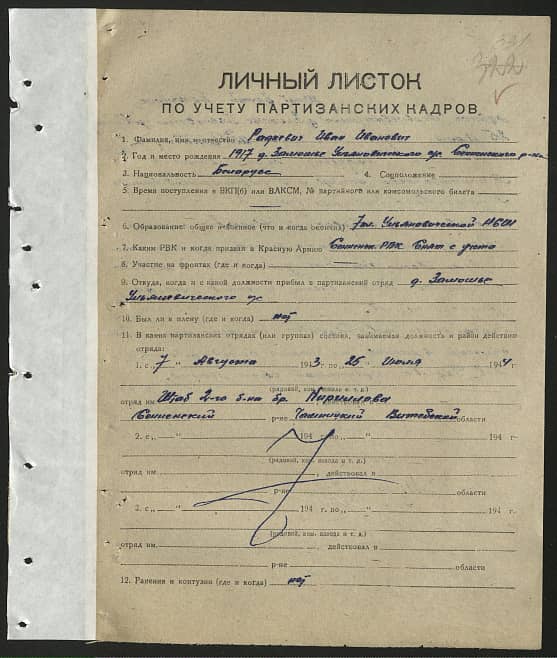 322
ЛИЧНЫЙ ЛИСТОК
ПО УЧЕТУ ПАРТИЗАНСКИХ КАДРОВ
1. Фамилия, имя и отчество Радкевич Иван Иванович
2. Год и место рождения 1917 д. Замошье Ульяновичского с/с Сенненского р-на
3. Национальность Белорус 4. Соцположение
5. Время поступления в ВКП(б) или ВЛКСМ, № партийного или комсомольского билета
6. Образование: общее и военное (что и когда окончил) 7 кл. Ульяновичской НСШ
7. Каким РВК и когда призван в Красную Армию Сеннен. РВК Снят с учета
8. Участие на фронтах (где и когда)
9. Откуда, когда и с какой должности прибыл в партизанский отряд д. Замошье
Ульяновичского с/с
10. Был ли в плену (где и когда) нет
11. В каких партизанских отрядах (или группах) состоял, занимаемая должность и район действию
отряда:
1. с „ 7 “ Августа 1943 г. по „ 25 “ Июня 1944
(рядовой, ком. взвода и т. д.)
отряд им Штаб 2-го б-на бр. Кириллова
Сенненский р-не Чашницкий Витебской области
2. с „ “ 194 г. по „ “ 194 г.
(рядовой, ком. взвода и т. д.)
отряд им. , действовал в
р-не области
2. с „ “ 194 г. по „ “ 194 г.
(рядовой, ком. взвода и т. д.)
отряд им. , действовал в
р-не области
12. Ранения и контузии (где и когда) нет